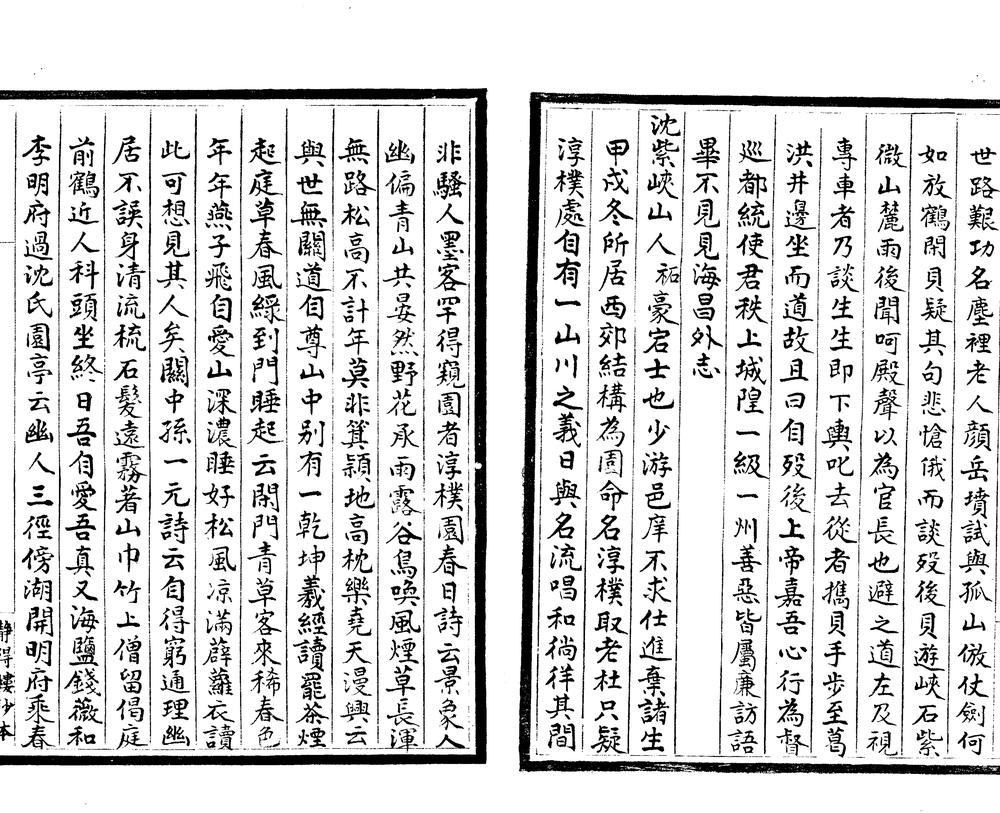 世路艱功名塵裡老人顔岳墳試與孤山倣仗劍何
如放鶴閑貝疑其句悲愴俄而談歿後貝遊峽石紫
微山麓雨後聞呵殿聲以為官長也避之道左及視
專車者乃談生生即下輿叱去從者携貝手步至葛
洪井邊坐而道故且曰自歿後上帝嘉吾心行為督
巡都統使君秩上城隍一級一州善惡皆屬廉訪語
畢不見見海昌外志
沈紫峽山人祏豪宕士也少游邑庠不求仕進棄諸生
甲戍冬所居西郊結構為園命名淳樸取老杜只疑
淳樸處自有一山川之義日與名流唱和徜徉其間
非騷人墨客罕得窺園者淳樸園春日詩云景象人
幽偏青山共晏然野花承雨露谷鳥喚風煙草長渾
無路松高不計年莫非箕潁地高枕樂堯天漫興云
與世無關道自尊山中别有一乾坤羲經讀罷茶煙
起庭草春風綠到門睡起云閑門青草客來稀春色
年年燕子飛自愛山深濃睡好松風凉滿薜蘿衣讀
此可想見其人矣關中孫一元詩云自得窮通理幽
居不誤身清流梳石髮遠霧著山巾竹上僧留偈庭
前鶴近人科頭坐終日吾自愛吾真又海鹽錢薇和
李明府過沈氏園亭云幽人三徑傍湖開明府乘春
静得樓抄本